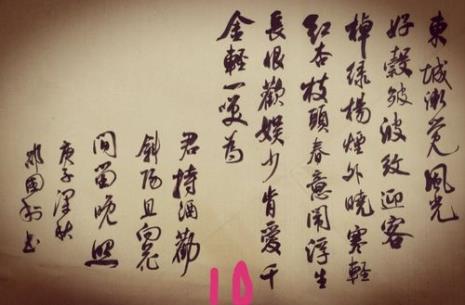 東城漸覺風光
好縠皺波紋迎客
棹綠楊煙外曉寒輕
紅杏枝頭春意鬧浮生
長恨歡娛少肯愛千
金輕一笑為
君持酒勸
斜陽且向花
間留晚照
庚子深秋
國書
10